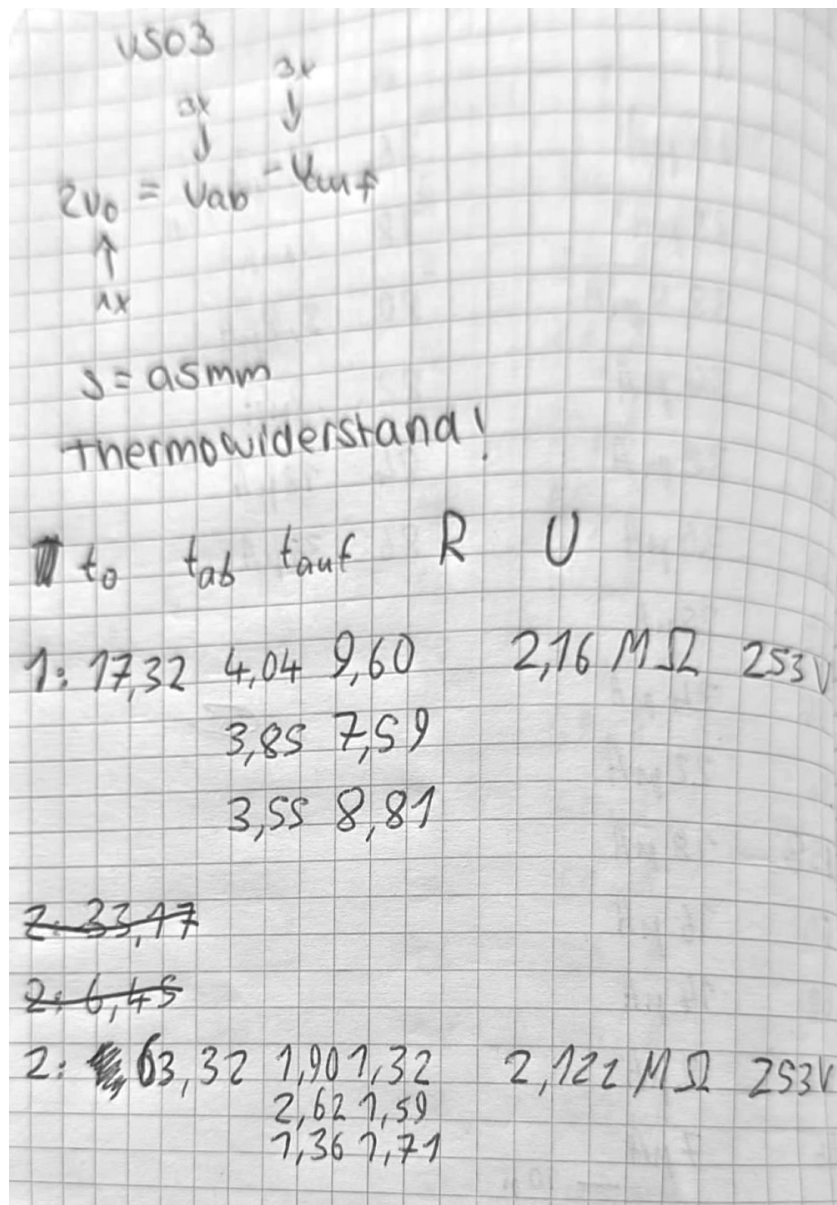 VS03
3x 3x
↓ ↓
2v0 = vab - vauf
↑
1x
s = 0,5mm
Thermowiderstand!
t0 tab tauf R U
1: 17,32 4,04 9,60 2,16 MΩ 253V
3,85 7,59
3,55 8,81
2: 33,17
2: 6,45
2: 63,32 1,90 1,32 2,122 MΩ 253V
2,62 1,59
1,36 1,71